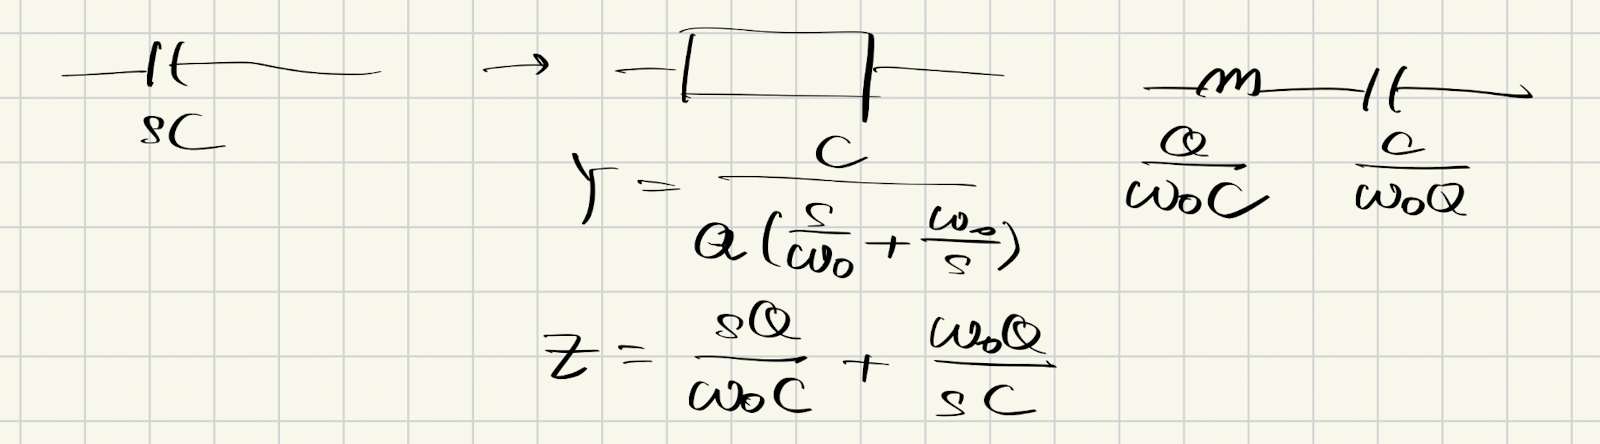 sC
Y = C / Q(s/ω₀ + ω₀/s)
Z = sQ/ω₀C + ω₀Q/sC
Q/ω₀C
C/ω₀Q